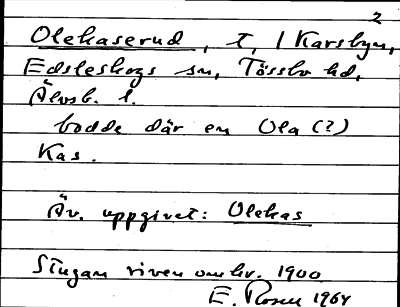 2
Olekaserud, t, / Karsbyn,
Edsleskogs sn, Tössbo hd,
Älvsb. l.
bodde där en Ola (?)
Kas.
Äv. uppgivet: Olekas
Stugan riven omkr. 1900
E. Rosen 1964